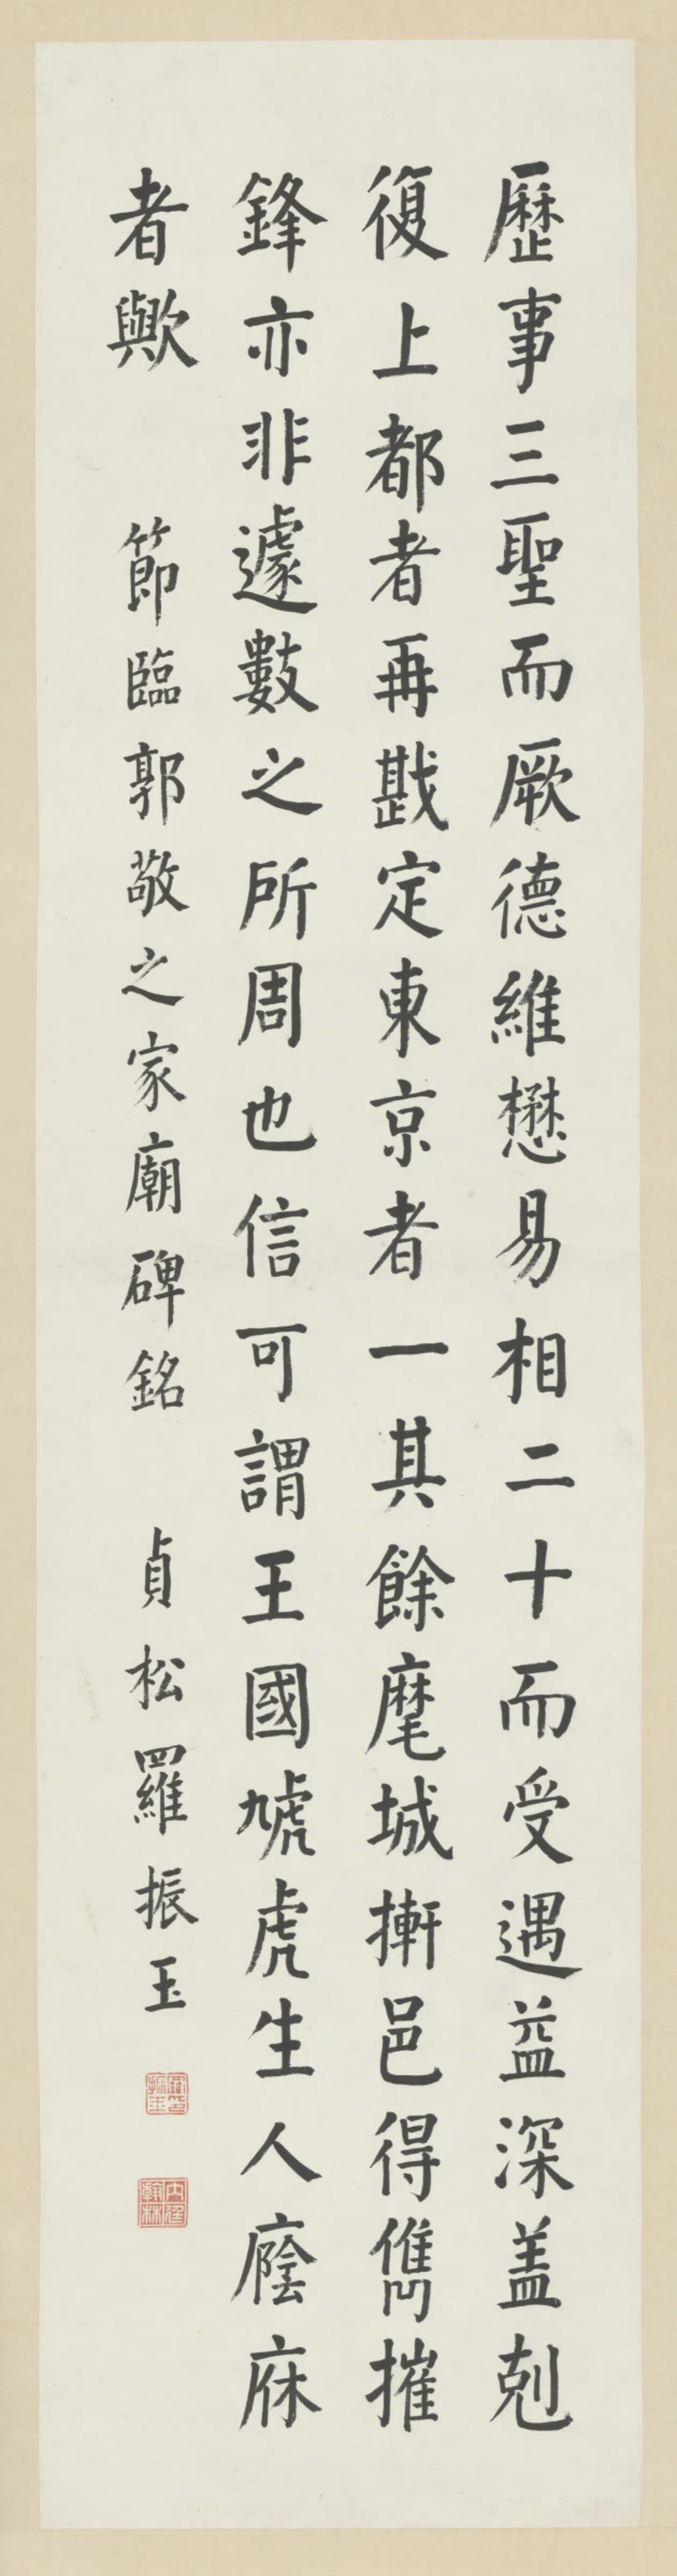 歷事三聖而厥德維懋易相二十而受遇益深盖剋
復上都者再戡定東京者一其餘麾城摲邑得儁摧
鋒亦非遽數之所周也信可謂王國虓虎生人廕庥
者歟 節臨郭敬之家廟碑銘 貞松羅振玉
羅振玉印
內廷翰林